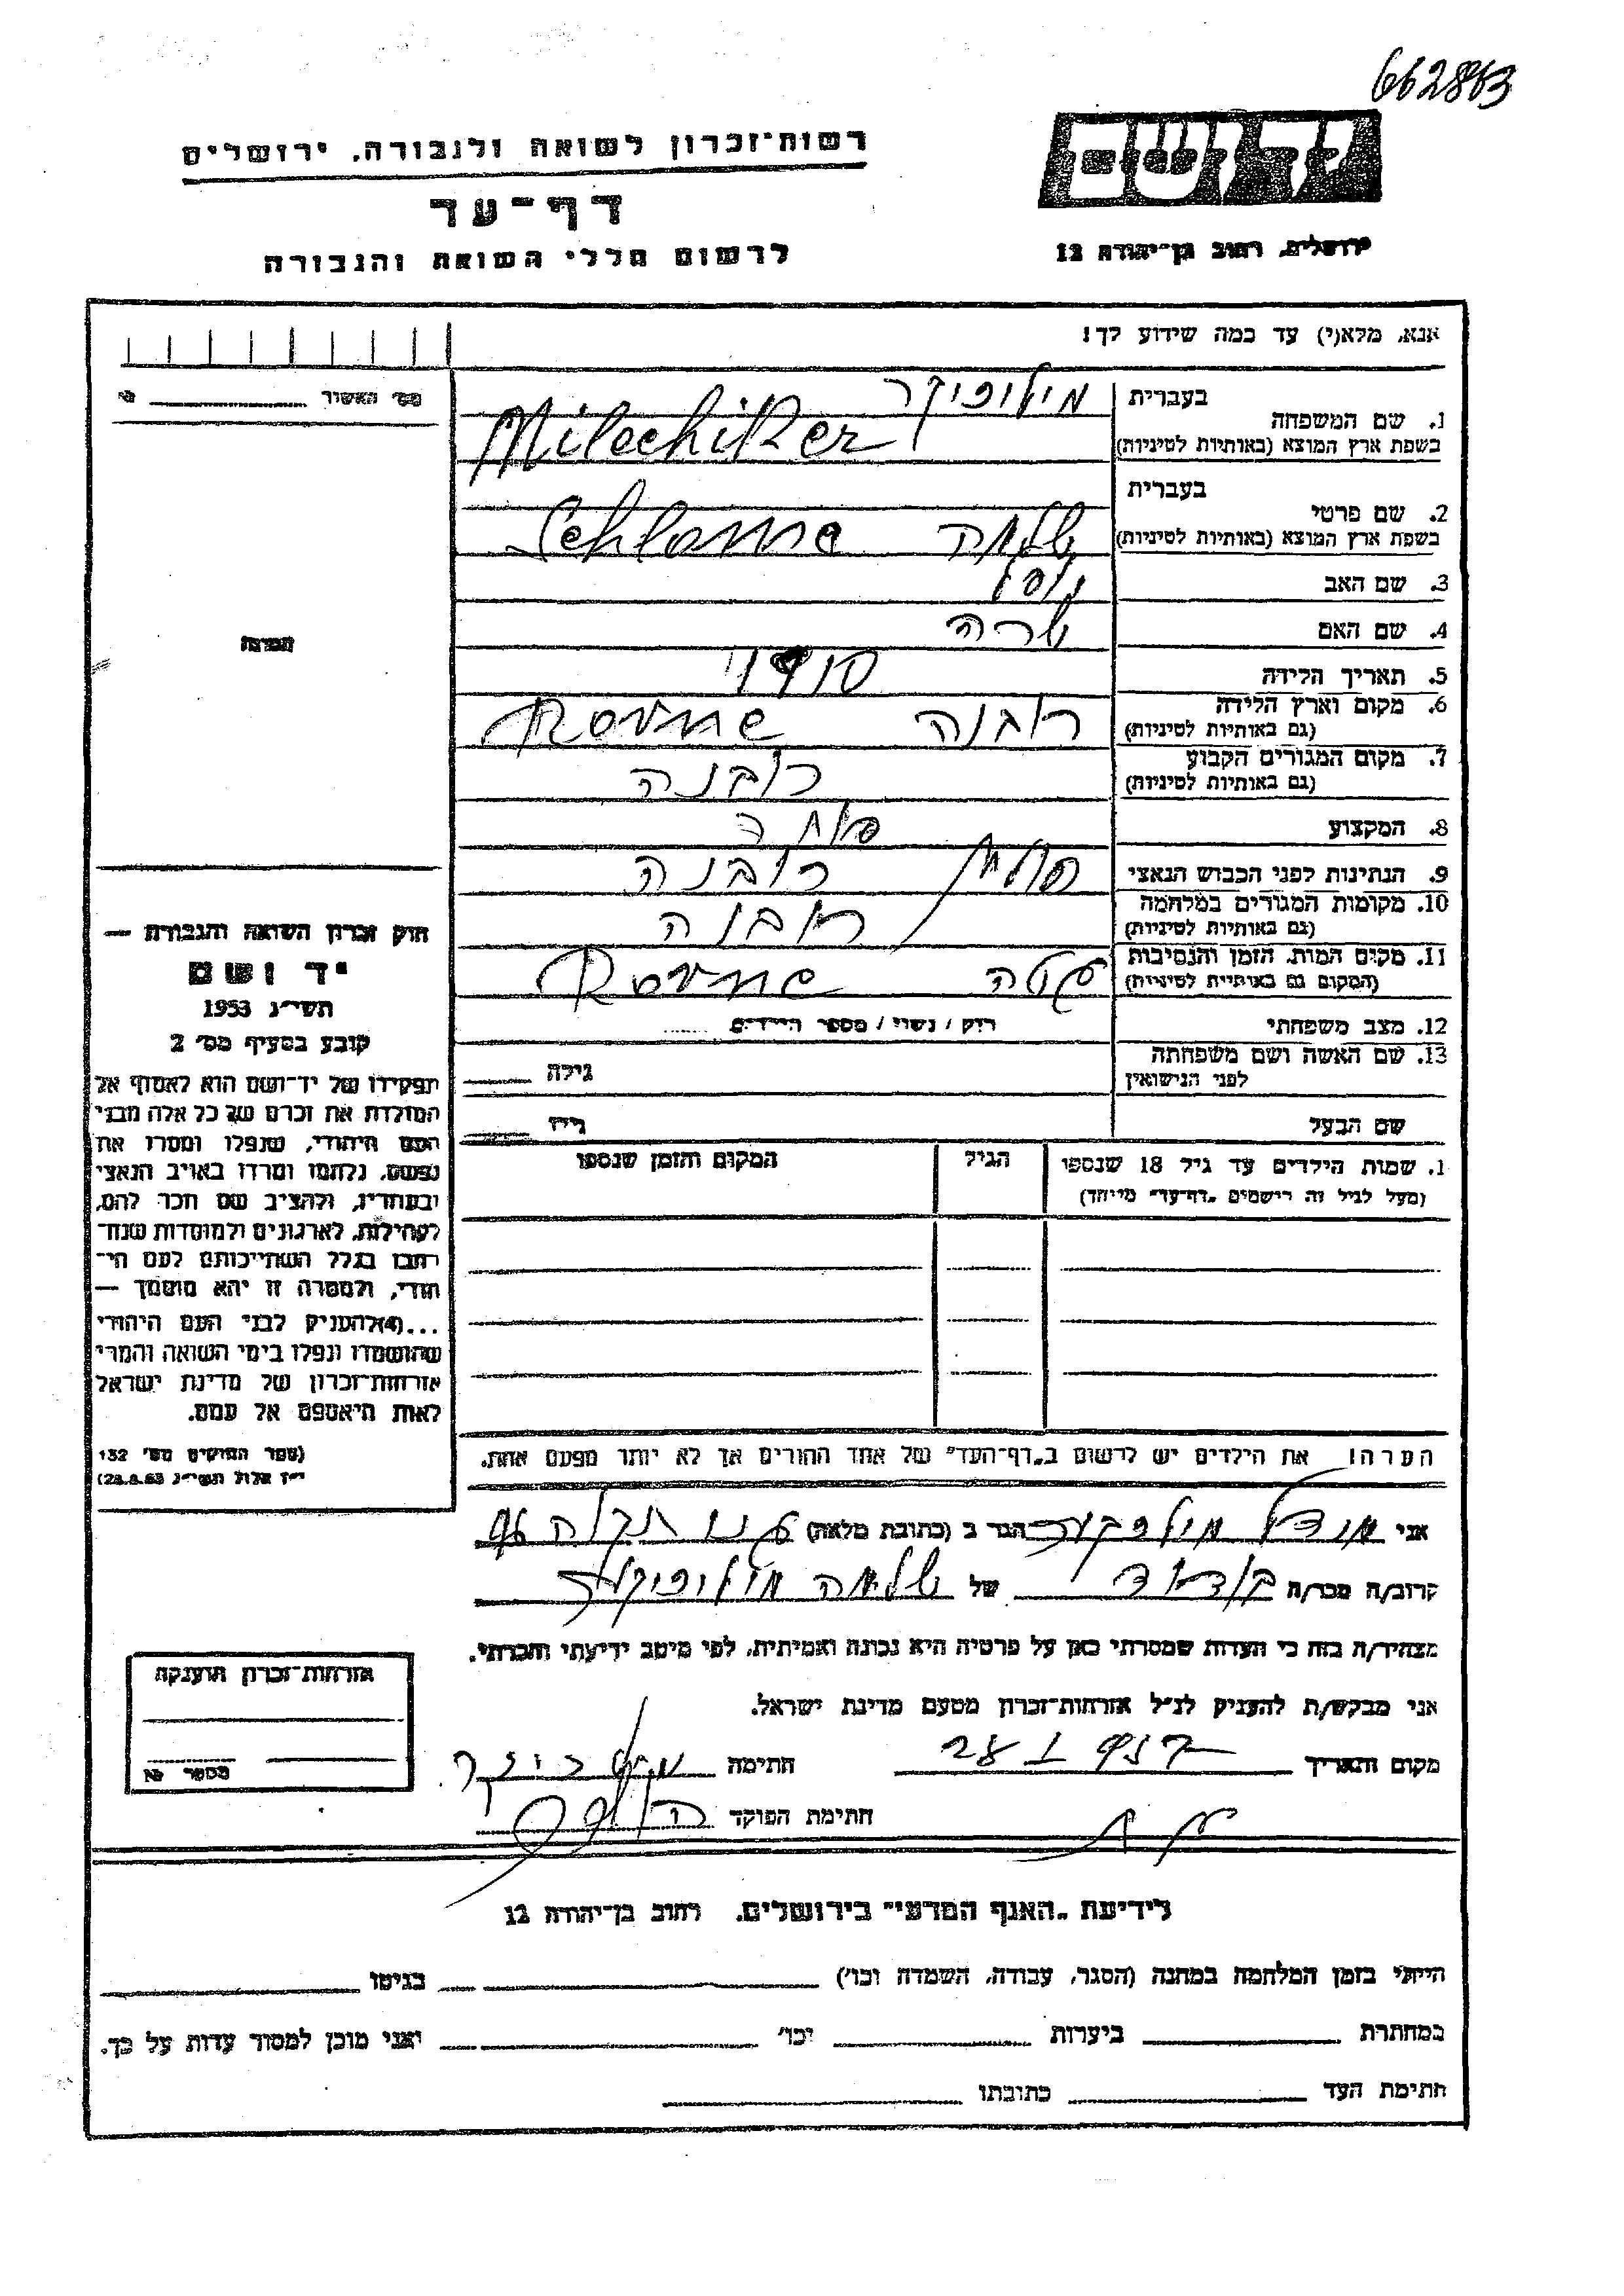 662863
רשות־זכרון לשואה ולגבורה, ירושלים
יד ושם
דף־עד
ירושלים, רחוב בן־יהודה 12
לרשום חללי השואה והגבורה
אנא, מלא(י) עד כמה שידוע לך!
מס׳ האשור
1. שם המשפחה
בעברית מילופיקר
בשפת ארץ המוצא (באותיות לטיניות) Milechiker
2. שם פרטי
בעברית
בשפת ארץ המוצא (באותיות לטיניות) שלמה Schlome
3. שם האב
4. שם האם שרה
5. תאריך הלידה 1910
6. מקום וארץ הלידה רובנה Rovne
(גם באותיות לטיניות)
7. מקום המגורים הקבוע רובנה
(גם באותיות לטיניות)
8. המקצוע
9. הנתינות לפני הכבוש הנאצי רובנה
10. מקומות המגורים במלחמה רובנה
(גם באותיות לטיניות)
11. מקום המות, הזמן והנסיבות Rovne
(המקום גם באותיות לטיניות)
12. מצב משפחתי רווק / נשוי / מספר הילדים
13. שם האשה ושם משפחתה גילה
לפני הנישואין
שם הבעל גילו
1. שמות הילדים עד גיל 18 שנספו
(מעל לגיל זה רישמים „דף־עד״ מיוחד)
הגיל
המקום והזמן שנספו
הערה! את הילדים יש לרשום ב„דף־העד״ של אחד ההורים אך לא יותר מפעם אחת.
תמונה
חוק זכרון השואה והגבורה —
יד ושם
תשי״ג 1953
קובע בסעיף מס׳ 2
תפקידו של יד־ושם הוא לאסוף אל
המולדת את זכרם של כל אלה מבני
העם היהודי, שנפלו ומסרו את
נפשם, נלחמו ומרדו באויב הנאצי
ובעוזריו, ולהציב שם וזכר להם,
לקהילות, לארגונים ולמוסדות שנח־
רבו בגלל השתייכותם לעם הי־
הודי, ולמטרה זו יהא מוסמך —
...(4)להעניק לבני העם היהודי
שהושמדו ונפלו בימי השואה והמרי
אזרחות־זכרון של מדינת ישראל
לאות היאספם אל עמם.
(ספר החוקים מס׳ 132
י״ז אלול תשי״ג 28.8.53)
אני הגר ב (כתובת מלאה) תקוה
קרוב/ה מכר/ה של שלמה מילופיקר
מצהיר/ה בזה כי העדות שמסרתי כאן על פרטיה היא נכונה ואמיתית, לפי מיטב ידיעתי והכרתי.
אני מבקש/ת להעניק לנ״ל אזרחות־זכרון מטעם מדינת ישראל.
מקום ותאריך חתימה
חתימת הפוקד
אזרחות־זכרון הוענקה
מספר
לידיעת „האגף המדעי״ בירושלים. רחוב בן־יהודה 12
הייתי בזמן המלחמה במחנה (הסגר, עבודה, השמדה וכו׳) בגיטו
במחתרת ביערות וכו׳ ואני מוכן למסור עדות על כך.
חתימת העד כתובתו